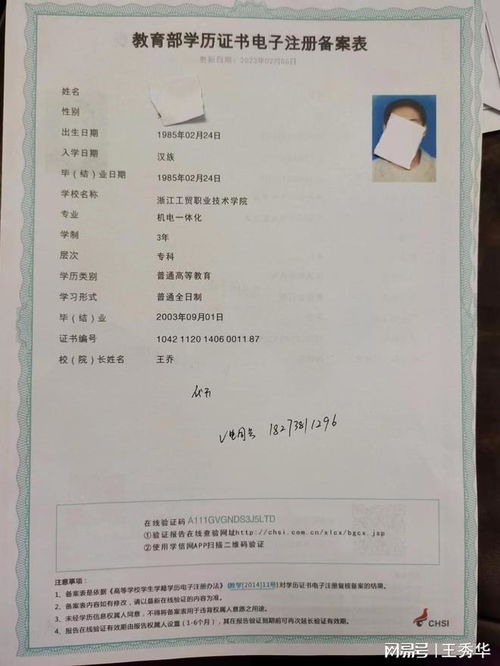 教育部学历证书电子注册备案表
更新日期：2023年02月06日
姓名
性别
出生日期 1985年02月24日
入学日期 汉族
毕（结）业日期 1985年02月24日
学校名称 浙江工贸职业技术学院
专业 机电一体化
学制 3年
层次 专科
学历类别 普通高等教育
学习形式 普通全日制
毕（结）业 2003年09月01日
证书编号 1042 1120 1406 0011 87
校（院）长姓名 王乔
V电同号 18273811296
在线验证码 A111GVGNDS3J5LTD
①验证报告在线查验网址http://chsi.com.cn/xlcx/bgcx.jsp
②使用学信网APP扫描二维码验证
注意事项：
1、备案表是依据《高等学校学生学籍学历电子注册办法》(教学[2014]11号)对学历证书电子注册复核备案的结果。
2、备案表内容如有修改，请以最新在线验证的内容为准。
3、未经学历信息权属人同意，不得将备案表用于违背权属人意愿之用途。
4、报告在线验证有效期由报告权属人设置（1-6个月），报告在验证到期前可再次延长验证有效期。
CHSI
搜狐号@王秀华